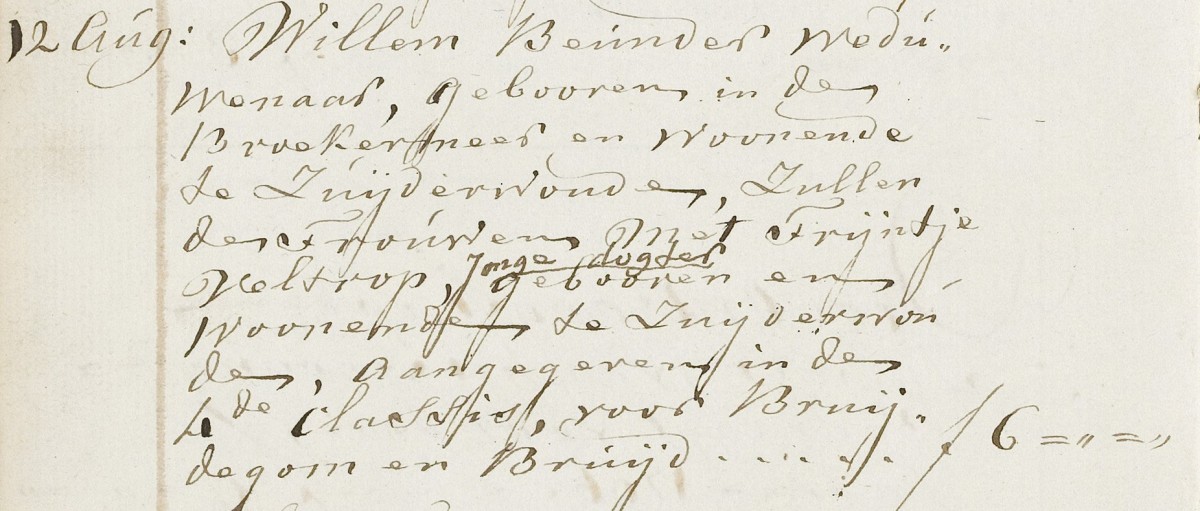 12 Aug: Willem Beunder wedu„
wenaar, Gebooren in de
Broekermeer en woonende
te Zuÿderwoude, Zullen
de Trouwen Met Trÿntje
Jonge dogter
Veltrop, gebooren en
woonende te Zuijderwou
de, Aangegeven in de
4de Classis, voor Bruij„
degom en Bruijd . . . . . . . ƒ 6 =„ =„